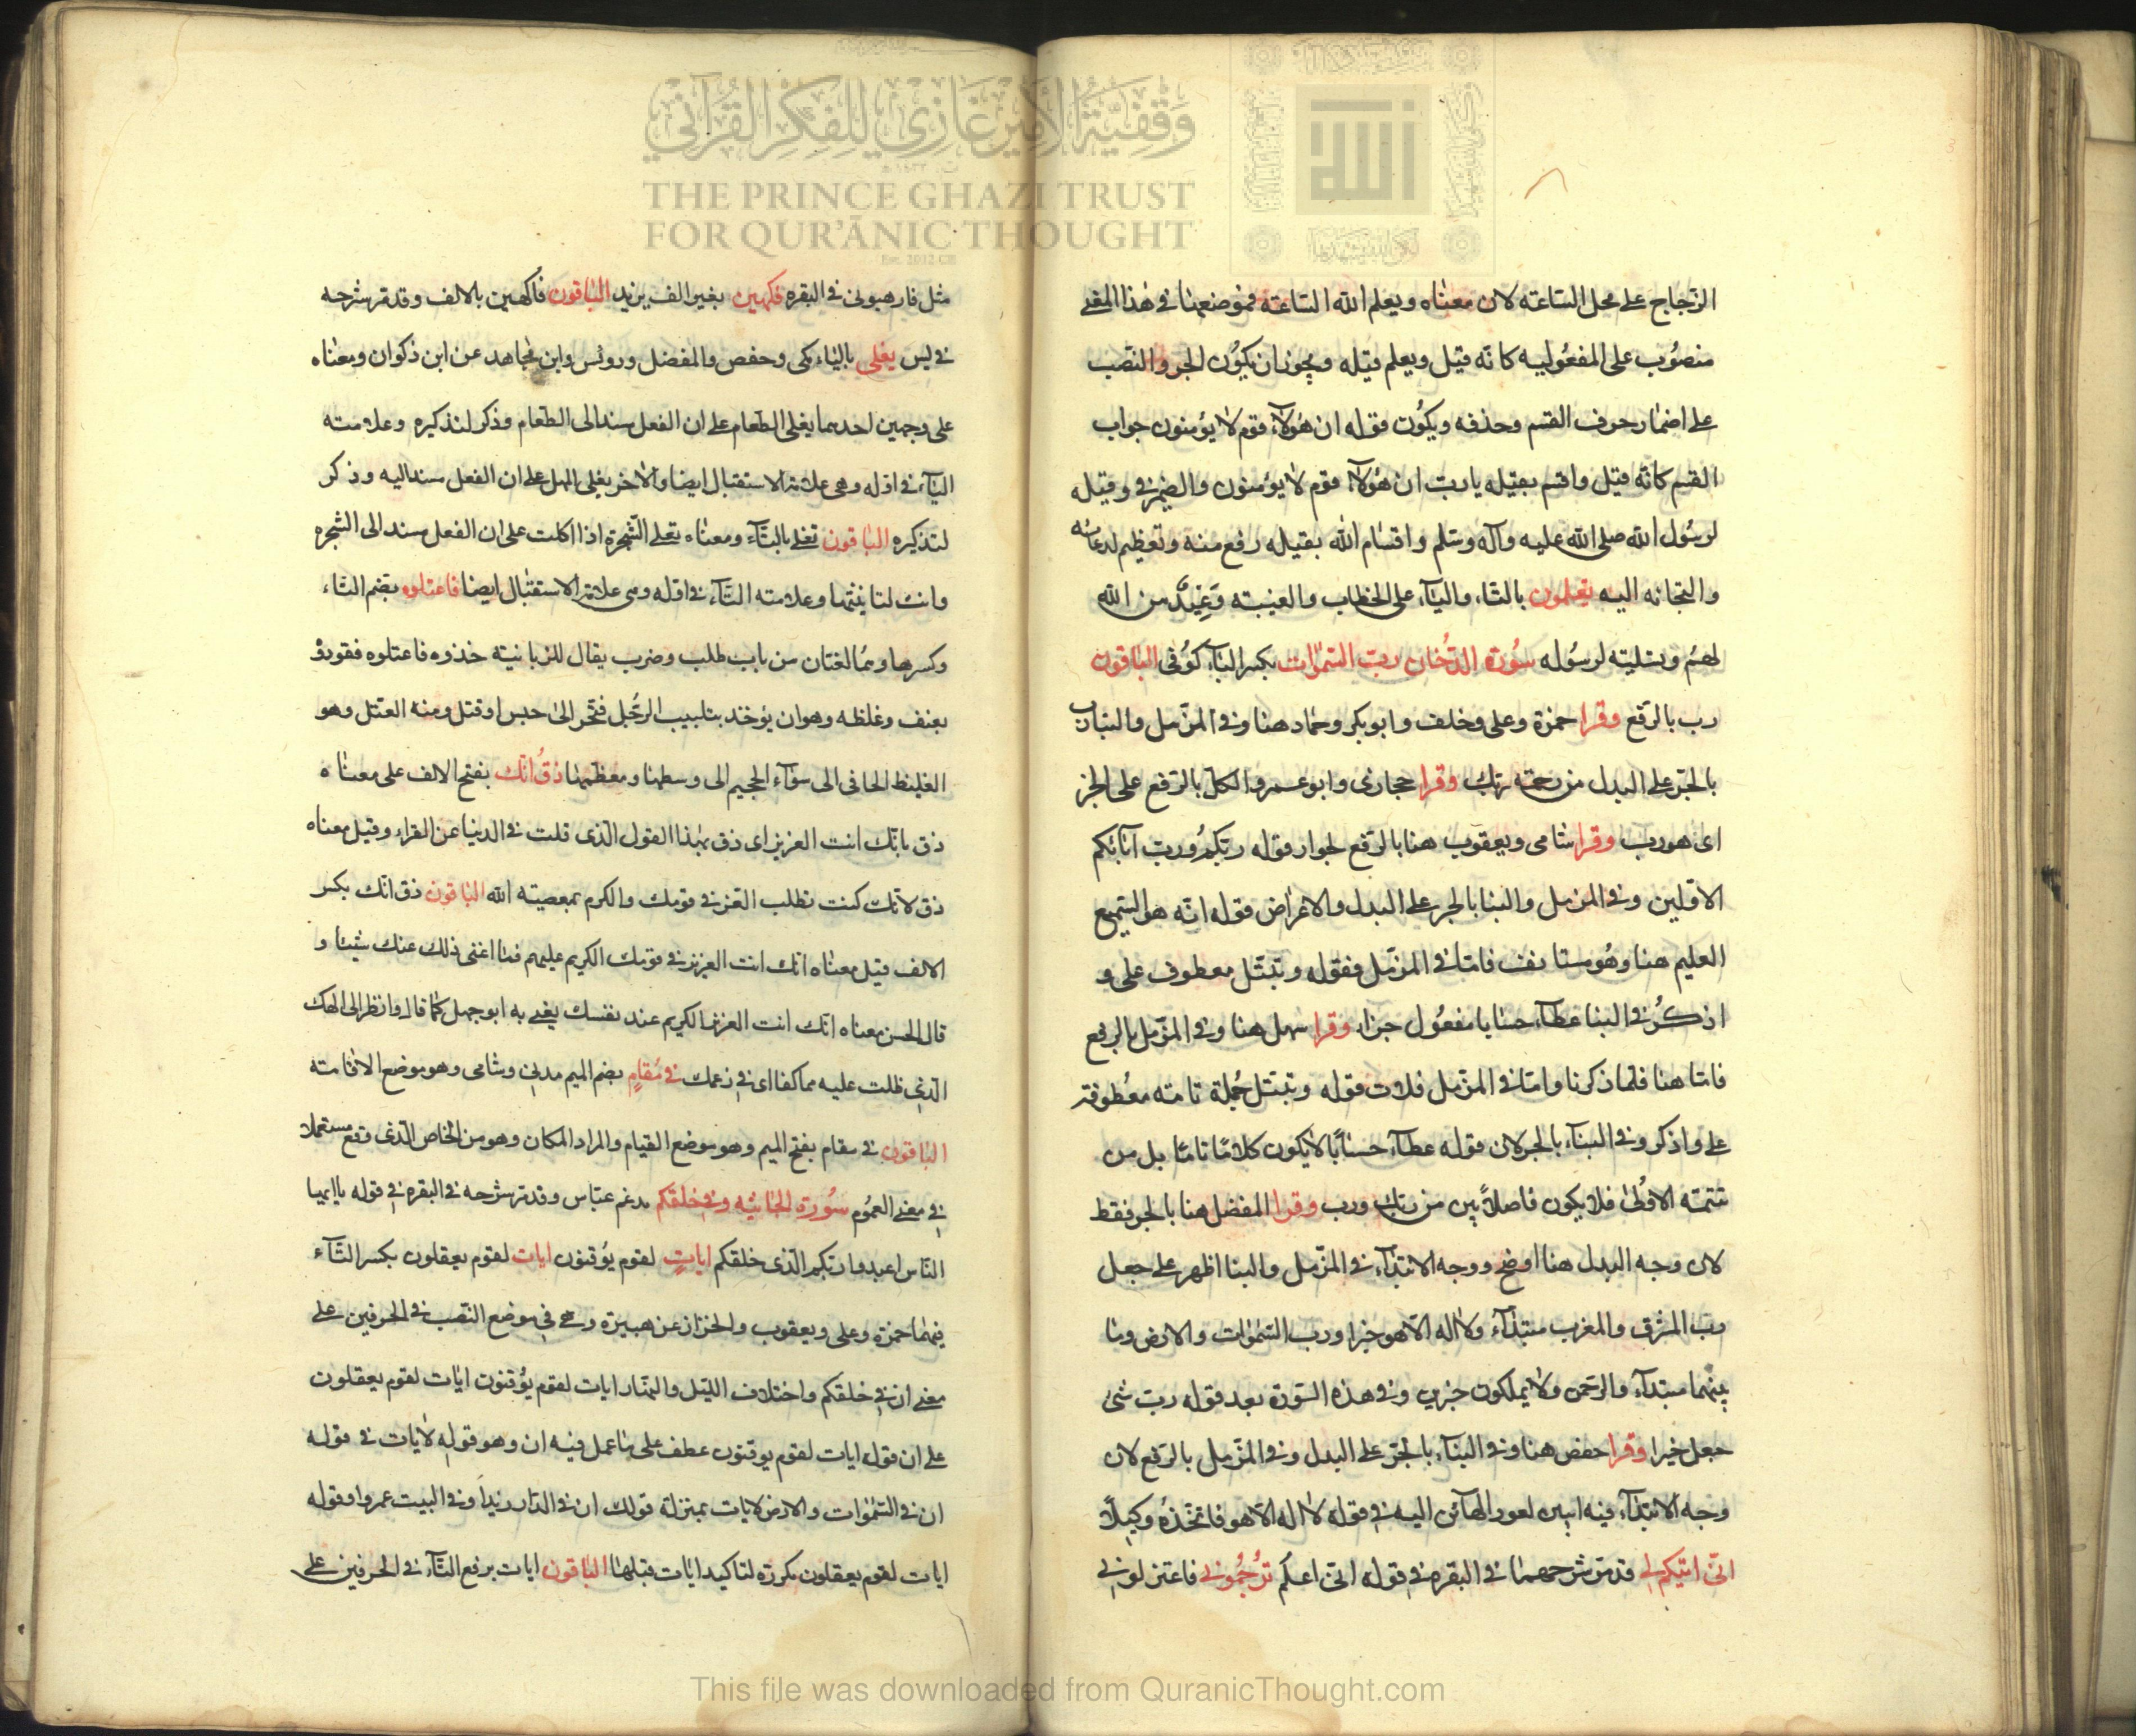 وقفية الأمير غازي للفكر القرآني
THE PRINCE GHAZI TRUST
FOR QUR'ĀNIC THOUGHT
الله
الزجاج على محل الساعته لان معناه ويعلم الله الساعته فموضعها في هذا المعنى
منصوب على المفعوليه كانه قيل ويعلم قيله ويجوز ان يكون الجر والنصب
على اضمار حرف القسم وحذفه ويكون قوله ان هؤلآء قوم لا يؤمنون جواب
القسم كانه قيل واقسم بقيله يا رب ان هؤلآء قوم لا يؤمنون والضمير في وقيله
لرسول الله صلى الله عليه وآله وسلم واقسام الله بقيله رفع منه وتعظيم لدعائه
والتجائه اليه يعلمون بالتاء والياء على الخطاب والغيبته وعيد من الله
لهم وتسليته لرسوله سورة الدخان رب السموات بكسر الباء كوفى الباقون
رب بالرفع وقرا حمزة وعلى وخلف وابو بكر وحماد هنا وفي المزمل والنبا رب
بالجر على البدل من رحمته ربك وقرا حجازى وابو عمرو الكل بالرفع على الخبر
اى هو رب وقرا شامى ويعقوب هنا بالرفع لجوار قوله ربكم ورب آبائكم
الاولين وفي المزمل والنبا بالجر على البدل والاعراض قوله انه هو السميع
العليم هنا وهو مستانف فاما في المزمل فقوله وتبتل معطوف على و
اذكر وفي النبا عطاء حسابا مفعول جزاء وقرا سهل هنا وفي المزمل بالرفع
فاما هنا فلما ذكرنا واما في المزمل فلان قوله وتبتل جملة تامته معطوفته
على واذكر وفي النباء بالجر لان قوله عطاء حسابا لا يكون كلاما تاما بل من
تتمته الاولى فلا يكون فاصلا بين من ربك ورب وقرا المفضل هنا بالجر فقط
لان وجه البدل هنا اوضح ووجه الابتداء في المزمل والنبا اظهر على جعل
رب المشرق والمغرب مبتداء ولا اله الا هو خبرا ورب السموات والارض وما
بينهما مبتداء والرحمن ولا يملكون خبرين وفي هذه السورة بعد قوله رب شئ
جعل خبرا وقرا حفص هنا وفي النباء بالجر على البدل وفي المزمل بالرفع لان
وجه الابتداء فيه ابين لعود الهآئن اليه في قوله لا اله الا هو فاتخذه وكيلا
انى اتيكم لى قد مر شرحهما في البقره في قوله انى اعلم ترجمونى فاعتزلونى
مثل فارهبونى في البقره فكهين بغير الف يزيد الباقون فاكهين بالالف وقد مر شرحه
في يس يغلى بالياء مكى وحفص والمفضل ورويس وابن مجاهد عن ابن ذكوان ومعناه
على وجهين احدهما يغلى الطعام على ان الفعل مسند الى الطعام وذكر لتذكيره وعلامته
الياء في اوله وهى علامته الاستقبال ايضا والاخر يغلى المهل على ان الفعل مسند اليه وذكر
لتذكيره الباقون تغلى بالتاء ومعناه تغلى الشجرة اذا اكلت على ان الفعل مسند الى الشجره
وانث لتانيثها وعلامته التاء في اوله وهى علامته الاستقبال ايضا فاعتلوه بضم التاء
وكسرها وهما لغتان من باب طلب وضرب يقال للزبانيته خذوه فاعتلوه فقودوه
بعنف وغلظه وهو ان يؤخذ بتلبيب الرجل فتجر الى حبس او قتل ومنه العتل وهو
الغليظ الجافى الى سوآء الجحيم الى وسطها ومعظمها ذق انك بفتح الالف على معناه
ذق بانك انت العزيز اى ذق بهذا القول الذى قلت في الدنيا عن الفراء وقيل معناه
ذق لانك كنت تطلب العز في قومك والكرم بمعصيته الله الباقون ذق انك بكسر
الالف قيل معناه انك انت العزيز في قومك الكريم عليهم فما اغنى ذلك عنك شيئا و
قال الحسن معناه انك انت العزيز الكريم عند نفسك يعنى به ابو جهل كما قال وانظر الى الهك
الذى ظلت عليه عاكفا اى في زعمك في مقام بضم الميم مدنى وشامى وهو موضع الاقامته
الباقون في مقام بفتح الميم وهو موضع القيام والمراد المكان وهو من الخاص الذى وقع مستعملا
في معنى العموم سورة الجاثيه وفي خلقكم مدغم عباس وقد مر شرحه في البقره في قوله يا ايها
الناس اعبدوا ربكم الذى خلقكم ايات لقوم يوقنون ايات لقوم يعقلون بكسر التاء
فيهما حمزه وعلى ويعقوب والخزاز عن هبيرة وهى في موضع النصب في الحرفين على
معنى ان في خلقكم واختلاف الليل والنهار ايات لقوم يوقنون ايات لقوم يعقلون
على ان قوله ايات لقوم يوقنون عطف على ما عمل فيه ان وهو قوله لايات في قوله
ان في السموات والارض لايات بمنزلة قولك ان في الدار زيدا وفي البيت عمروا وقوله
ايات لقوم يعقلون مكررة لتاكيد ايات قبلها الباقون ايات برفع التاء في الحرفين على
This file was downloaded from QuranicThought.com